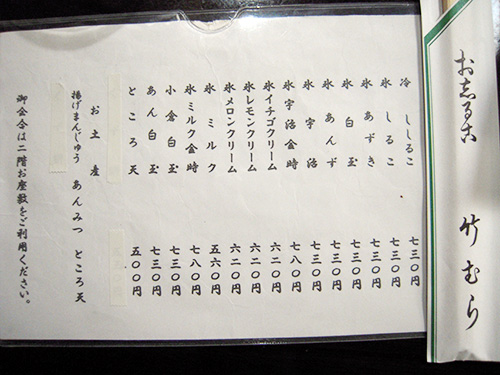 お志る古 竹むら
冷ししるこ 七三〇円
氷しるこ 七三〇円
氷あずき 七三〇円
氷白玉 七三〇円
氷あんず 七三〇円
氷宇治 七三〇円
氷宇治金時 七八〇円
氷イチゴクリーム 六二〇円
氷レモンクリーム 六二〇円
氷メロンクリーム 六二〇円
氷ミルク 五六〇円
氷ミルク金時 七八〇円
小倉白玉 七三〇円
あん白玉 七三〇円
ところ天 五〇〇円
お土産
揚げまんじゅう あんみつ ところ天
御会合は二階お座敷をご利用ください。